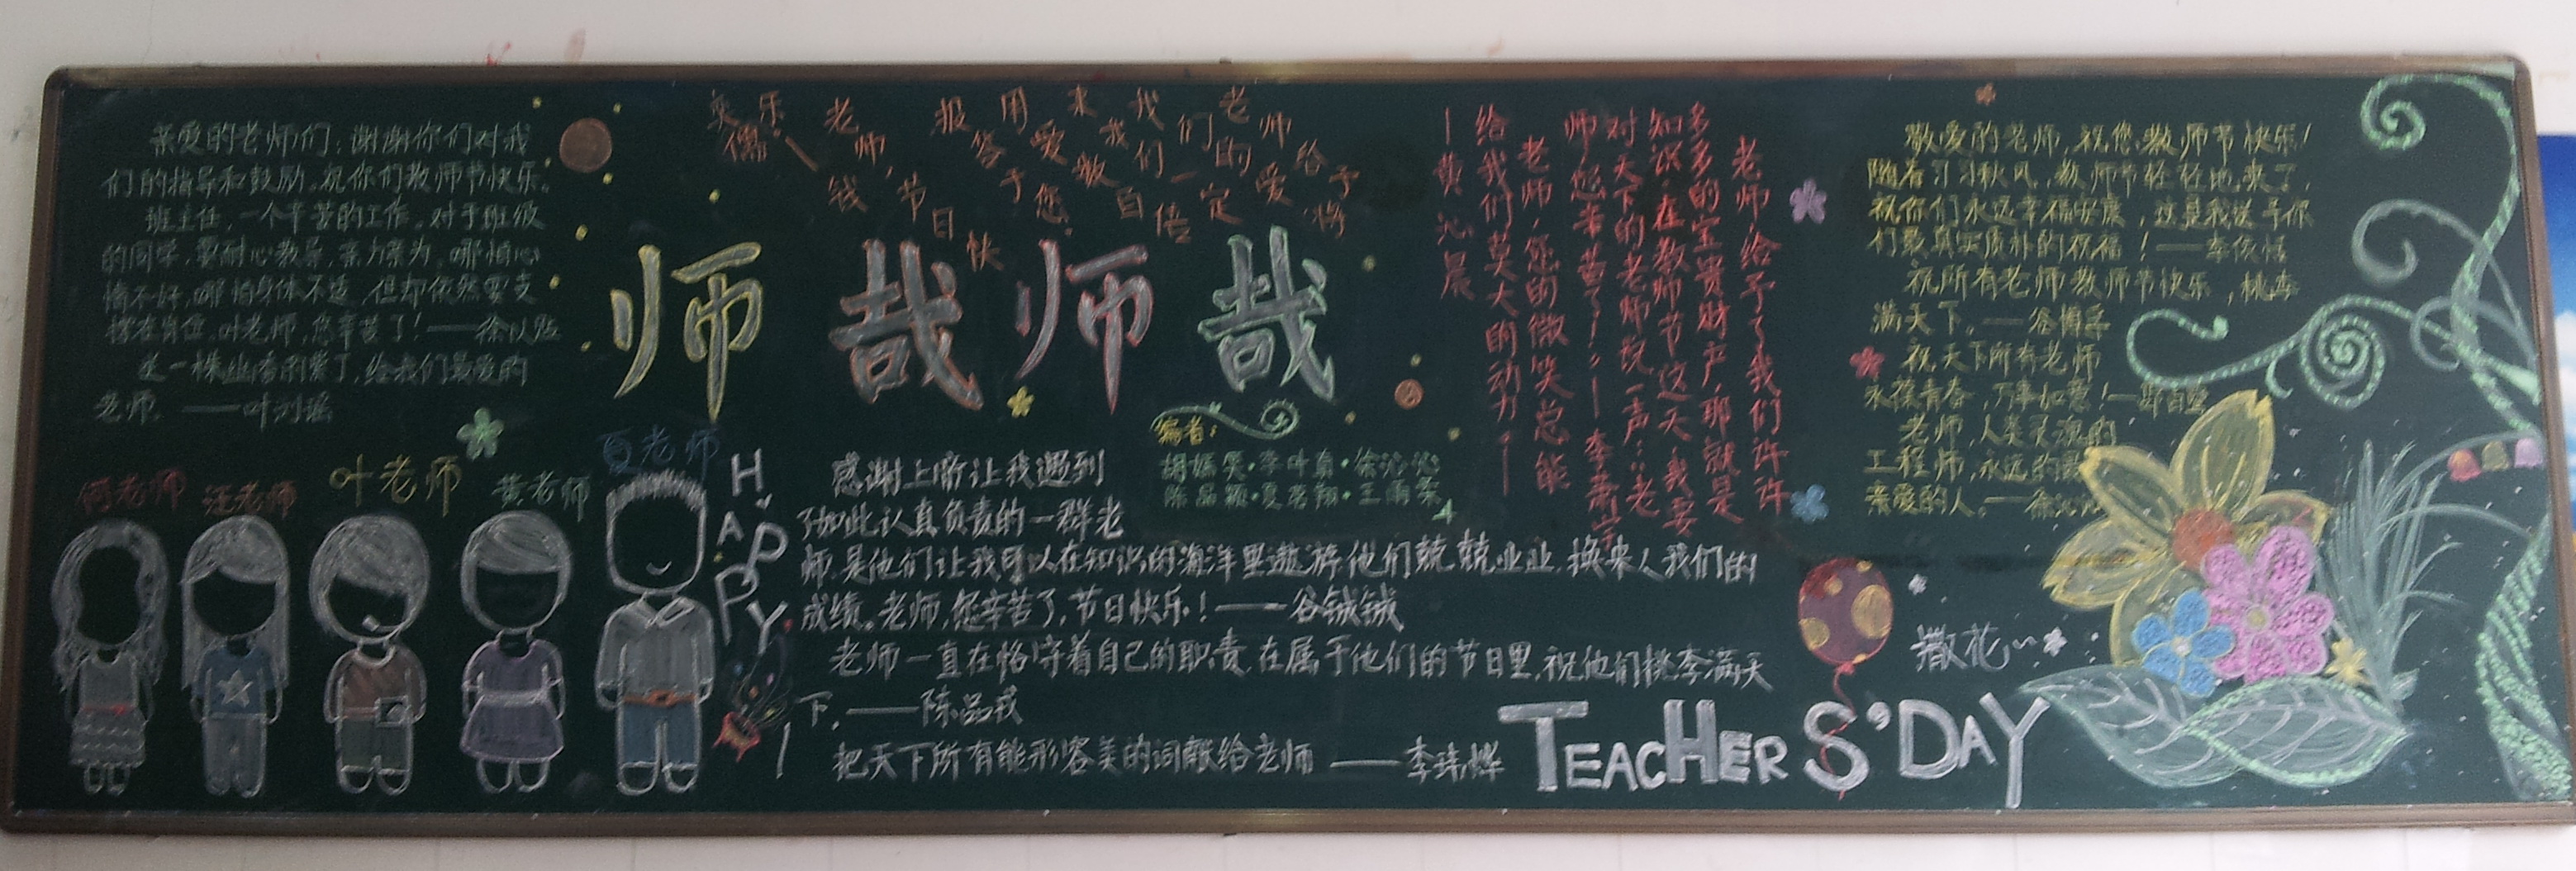 亲爱的老师们：谢谢你们对我
们的指导和鼓励。祝你们教师节快乐。
班主任，一个辛苦的工作。对于班级
的同学，要耐心教导，亲力亲为。哪怕心
情不好，哪怕身体不适，但却依然要支
撑在岗位，叶老师，您辛苦了！——徐
送一株幽香的紫丁，给我们最爱的
老师。——叶刘瑶
何老师
汪老师
叶老师
黄老师
夏老师
老师给予我们的爱，将
来我们一定
用爱
报答于您
老师，节日快乐！
师哉师哉
编者：
李叶真·徐沁沁
陈品颖·夏
HAPPY
感谢上帝让我遇到
了如此认真负责的一群老
师，是他们让我可以在知识的海洋里遨游，他们兢兢业业，换来人我们的
成绩。老师，您辛苦了，节日快乐！——谷铖铖
老师一直在恪守着自己的职责，在属于他们的节日里，祝他们桃李满天
下。——陈品戎
把天下所有能形容美的词献给老师——李玮烨
老师给予了我们许许
多多的宝贵财产，那就是
知识，在教师节这天，我要
对天下的老师说一声：“老
师，您辛苦了！”——李
老师，您的微笑总能
给我们莫大的动力！——
—黄沁晨
敬爱的老师，祝您教师节快乐！
随着习习秋风，教师节轻轻地来了，
祝你们永远幸福安康，这是我送予你
们最真实质朴的祝福！——李依恬
祝所有老师教师节快乐，桃李
满天下。——谷博
祝天下所有老师
永葆青春，万事如意！—
老师，人类灵魂的
工程师，永远的最
亲爱的人。——徐沁
撒花
TEACHERS'DAY